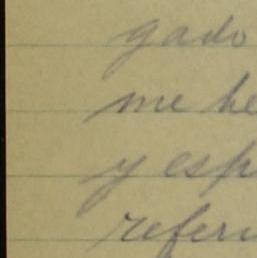 gado
me he
y esp
referi